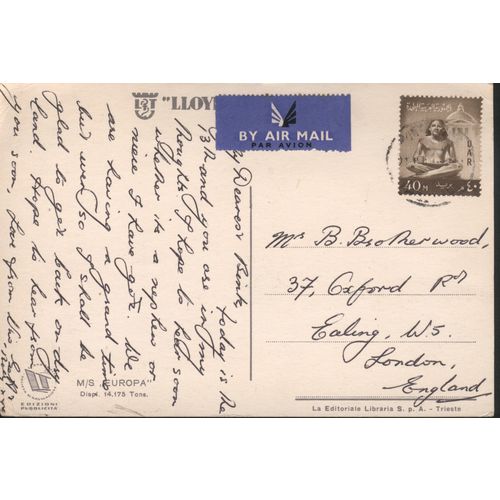 "LLOY
BY AIR MAIL
PAR AVION
UAR
40 M
٤٠ م
بريد
My Dearest
today is the
13th and you are in my
thoughts I hope to hear soon
whether its a nephew or
niece I have got. We
are having a grand time
but windy so I shall be
glad to get back on dry
land Hope to hear from
you soon, love from
Mrs B. Brotherwood,
37, Oxford Rd
Ealing, W5.
London,
England
EDIZIONI
PUBBLICITÀ
M/S „EUROPA"
Displ. 14.175 Tons.
La Editoriale Libraria S. p. A. - Trieste